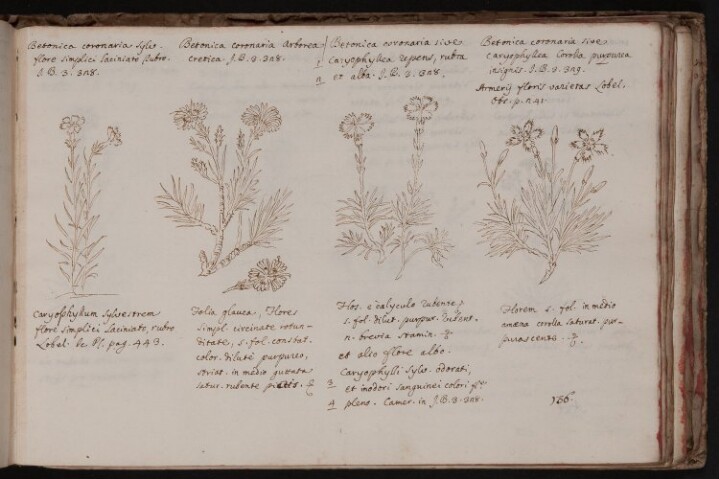 Betonica coronaria sylv.
flore simplici laciniato rubro.
J.B. 3. 328.
Betonica coronaria Arborea
cretica. J.B. 3. 328.
Betonica coronaria sive
1 Caryophyllea repens, rubra
2 et alba. J.B. 3. 328.
Betonica coronaria sive
caryophyllea Corolla purpurea
insignis. J.B. 3. 329.
Armerij floris varietas Lobel.
Obs. p. 241
Caryophyllum sylvestrem
flore simplici laciniato, rubro
Lobel. de Pl. pag. 443.
Folia glauca, Flores
simpl. circinate rotun-
ditate, 5. fol. constat.
color. dilute purpureo,
striat. in medio
rutente
Flos. e calyculo
5. fol. dilut. purpur.
n. brevia stamin.
et alio flore albo.
Caryophylli sylv. odorati,
3 et inodori sanguinei colori
4 pleno. Camer. in J.B. 3. 328.
Florem 5. fol. in medio
amæna corolla saturat. pur-
purascente.
156.